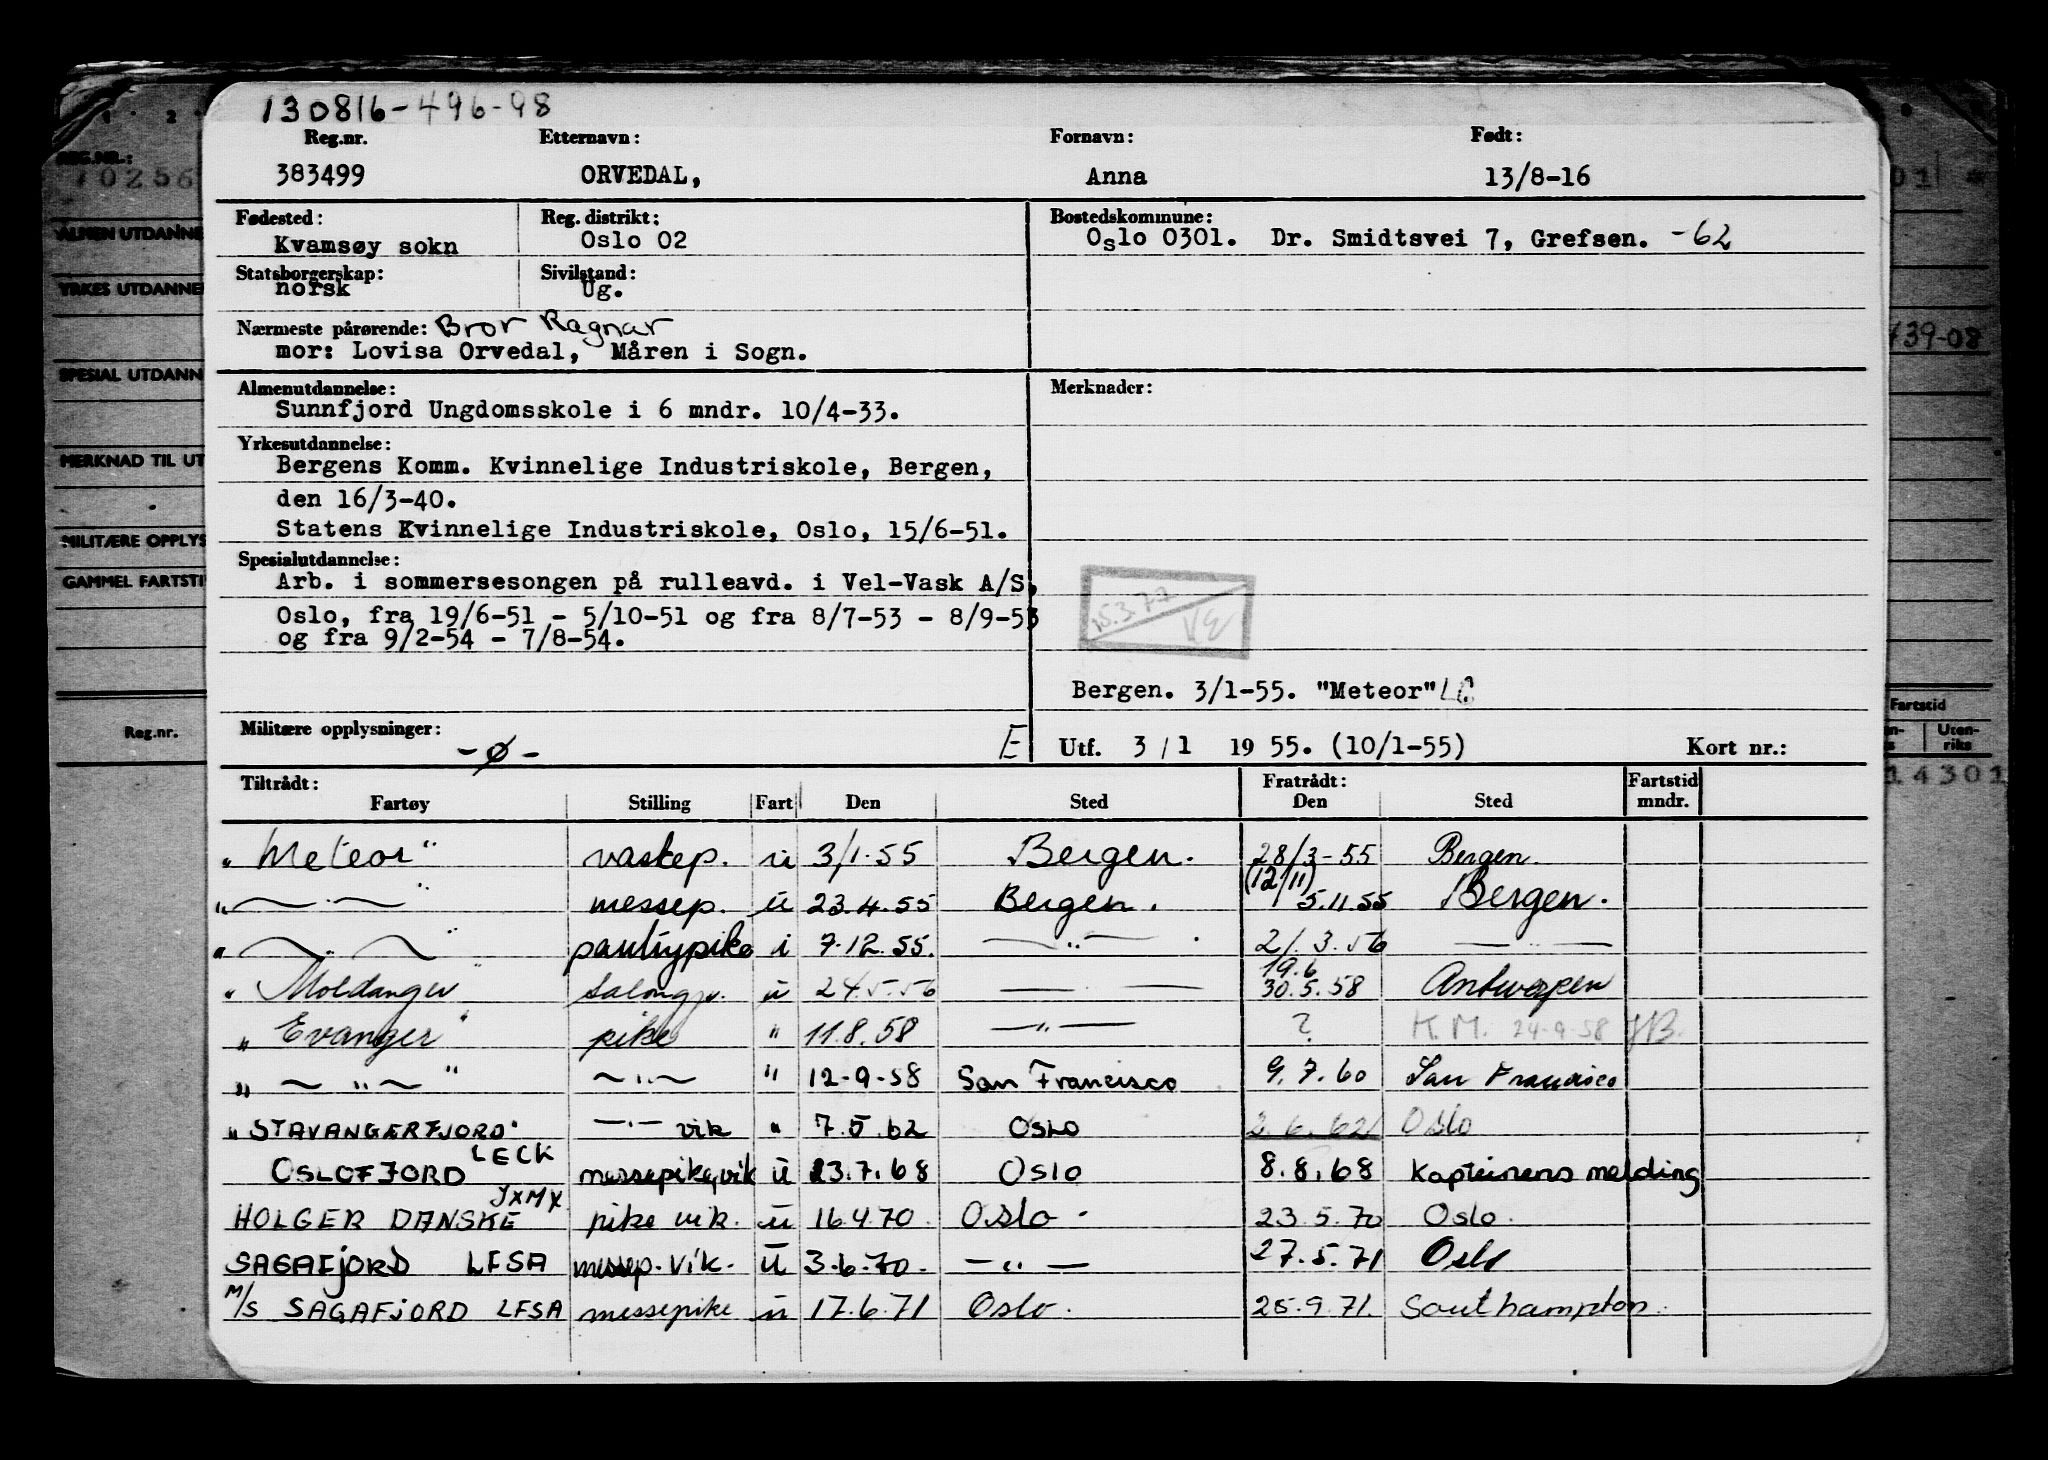 130816-496-98
Reg.nr. Etternavn: Fornavn: Født:
383499 ORVEDAL, Anna 13/8-16
Fødested: Reg. distrikt: Bostedskommune:
Kvamsøy sokn Oslo 02 Oslo 0301. Dr. Smidtsvei 7, Grefsen. -62
Statsborgerskap: Sivilstand:
norsk Ug.
Nærmeste pårørende: Bror Ragnar
mor: Lovisa Orvedal, Måren i Sogn.
Almenutdannelse: Merknader:
Sunnfjord Ungdomsskole i 6 mndr. 10/4-33.
Yrkesutdannelse:
Bergens Komm. Kvinnelige Industriskole, Bergen,
den 16/3-40.
Statens Kvinnelige Industriskole, Oslo, 15/6-51.
Spesialutdannelse:
Arb. i sommersesongen på rulleavd. i Vel-Vask A/S,
Oslo, fra 19/6-51 - 5/10-51 og fra 8/7-53 - 8/9-53
og fra 9/2-54 - 7/8-54.
15.3.77
Bergen. 3/1-55. "Meteor"
Militære opplysninger: -ø- E Utf. 3/1 1955. (10/1-55) Kort nr.:
Tiltrådt: Fratrådt: Fartstid
Fartøy Stilling Fart Den Sted Den Sted mndr.
"Meteor" vaskep. u 3/1-55 Bergen. 28/3-55 Bergen.
(12/11)
" — . — " messep. u 23.4.55 Bergen. 5.11.55 Bergen.
" — " — " pantrypike i 7.12.55. — " — 21.3.56 — " —
19.6
"Moldanger" salongp. u 24.5.56 — " — 30.5.58 Antwerpen
"Evanger" pike " 11.8.58 — " — ? K.M. 24-9-58 JB.
" — " — " — " — " 12-9-58 San Francisco 9.7.60 San Francisco
"STAVANGERFJORD" — " — vik " 7.5.62 Oslo 2.6.62 Oslo
LECK
OSLOFJORD messepike, vik u 23.7.68 Oslo 8.8.68 Kapteinens melding
JXMX
HOLGER DANSKE pike vik. u 16.4.70. Oslo. 23.5.70 Oslo.
SAGAFJORD LFSA messep. vik. u 3.6.70. — " — 27.5.71 Oslo
M/S SAGAFJORD LFSA messepike u 17.6.71 Oslo. 25.9.71. Southampton.
REG.NR.:
10256
ALMEN UTDANNE
YRKES UTDANNE
SPESIAL UTDANN
MERKNAD TIL UT
MILITÆRE OPPLYS
GAMMEL FARTSTI
Reg.nr.
01
439-08
Fartstid
Uten-
riks
14301